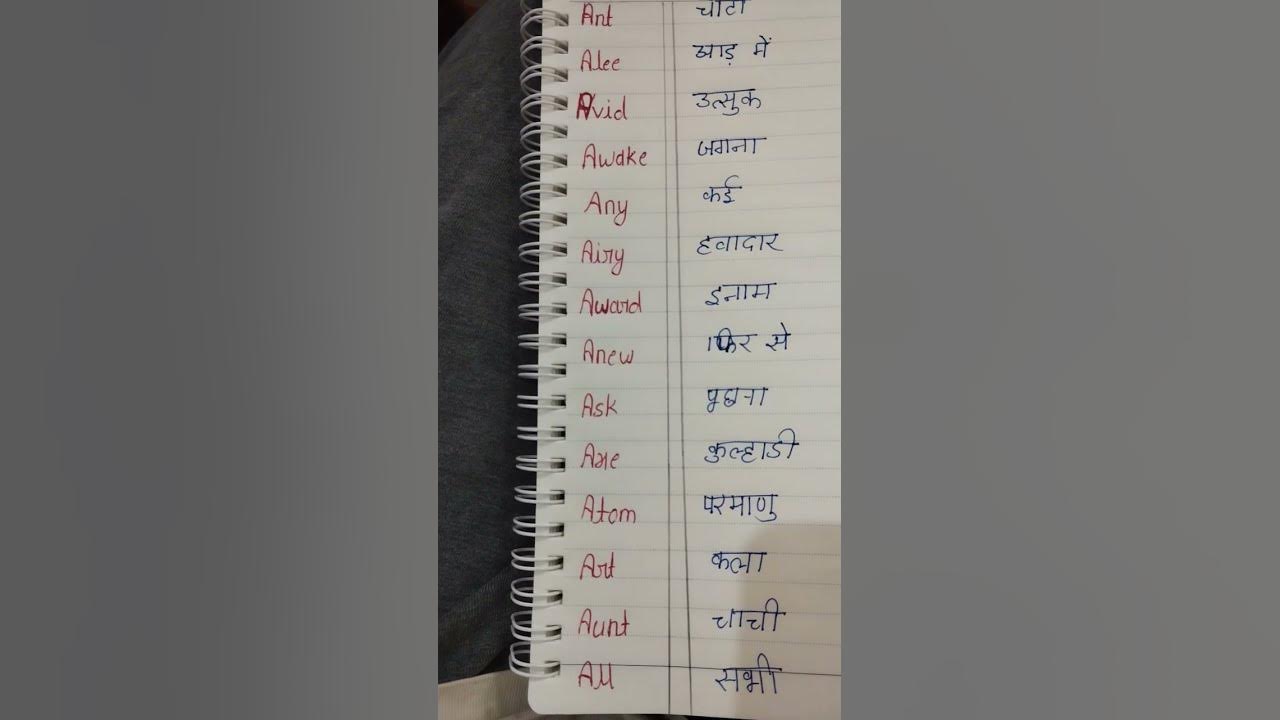 Ant चीटी
Alee आड़ में
Avid उत्सुक
Awake जगना
Any कई
Airy हवादार
Award इनाम
Anew फिर से
Ask पूछना
Axe कुल्हाडी
Atom परमाणु
Art कला
Aunt चाची
All सभी